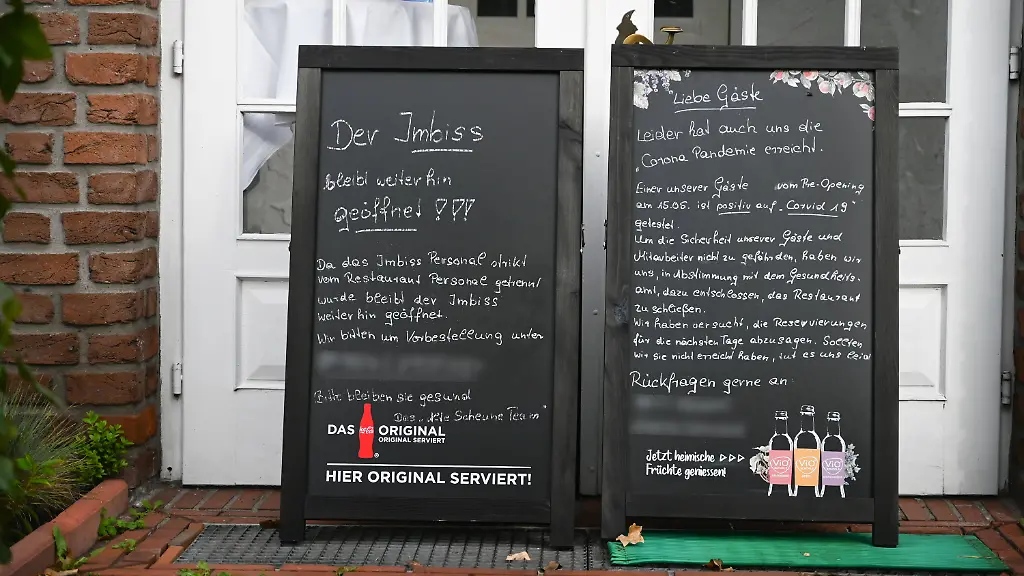 Der Imbiss
bleibt weiterhin
geöffnet !!!
Da das Imbiss Personal strikt
vom Restaurant Personal getrennt
wurde bleibt der Imbiss
weiterhin geöffnet.
Wir bitten um Vorbestellung unter
Bitte bleiben sie gesund
Das „Alte Scheune Team“
DAS ORIGINAL
ORIGINAL SERVIERT
HIER ORIGINAL SERVIERT!
Liebe Gäste
Leider hat auch uns die
Corona Pandemie erreicht.
Einer unserer Gäste vom Pre-Opening
am 15.05. ist positiv auf „Corvid 19“
getestet.
Um die Sicherheit unserer Gäste und
Mitarbeiter nicht zu gefährden, haben wir
uns, in Abstimmung mit dem Gesundheits-
amt, dazu entschlossen, das Restaurant
zu schließen.
Wir haben versucht, die Reservierungen
für die nächsten Tage abzusagen. Sollten
wir sie nicht erreicht haben, tut es uns leid
Rückfragen gerne an:
Jetzt heimische ▷▷▷
Früchte genießen!
ViO ViO ViO